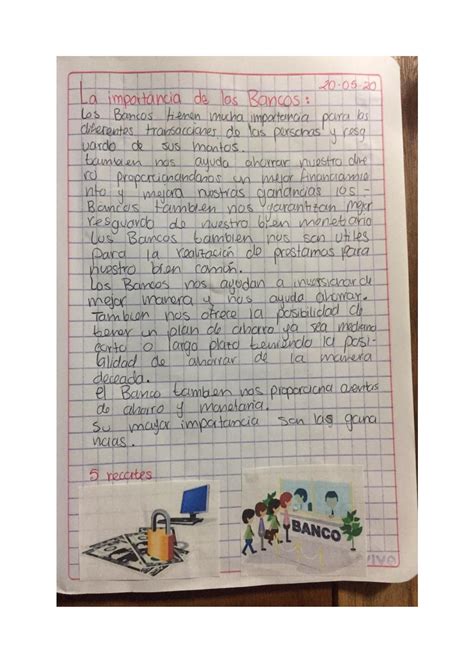 20-05-20
La importancia de los Bancos:
Los Bancos tienen mucha importancia para las
diferentes transacciones de las personas y resg
uardo de sus montos.
tambien nos ayuda ahorrar nuestro dine
ro proporcionandonos un mejor financiamie
nto y mejora nuestras ganancias los -
Bancos tambien nos garantizan mejor
resguardo de nuestro bien monetario
Los Bancos tambien nos son utiles
para la realización de prestamos para
nuestro bien común.
Los Bancos nos ayudan a inversionar de
mejor manera y nos ayuda ahorrar.
Tambien nos ofrece la posibilidad de
tener un plan de ahorro ya sea mediano
corto o largo plazo teniendo la posi-
bilidad de ahorrar de la manera
deceada.
el Banco tambien nos proporciona cuentas
de ahorro y monetaria.
Su mayor importancia son las gana
ncias.
5 recortes
BANCO